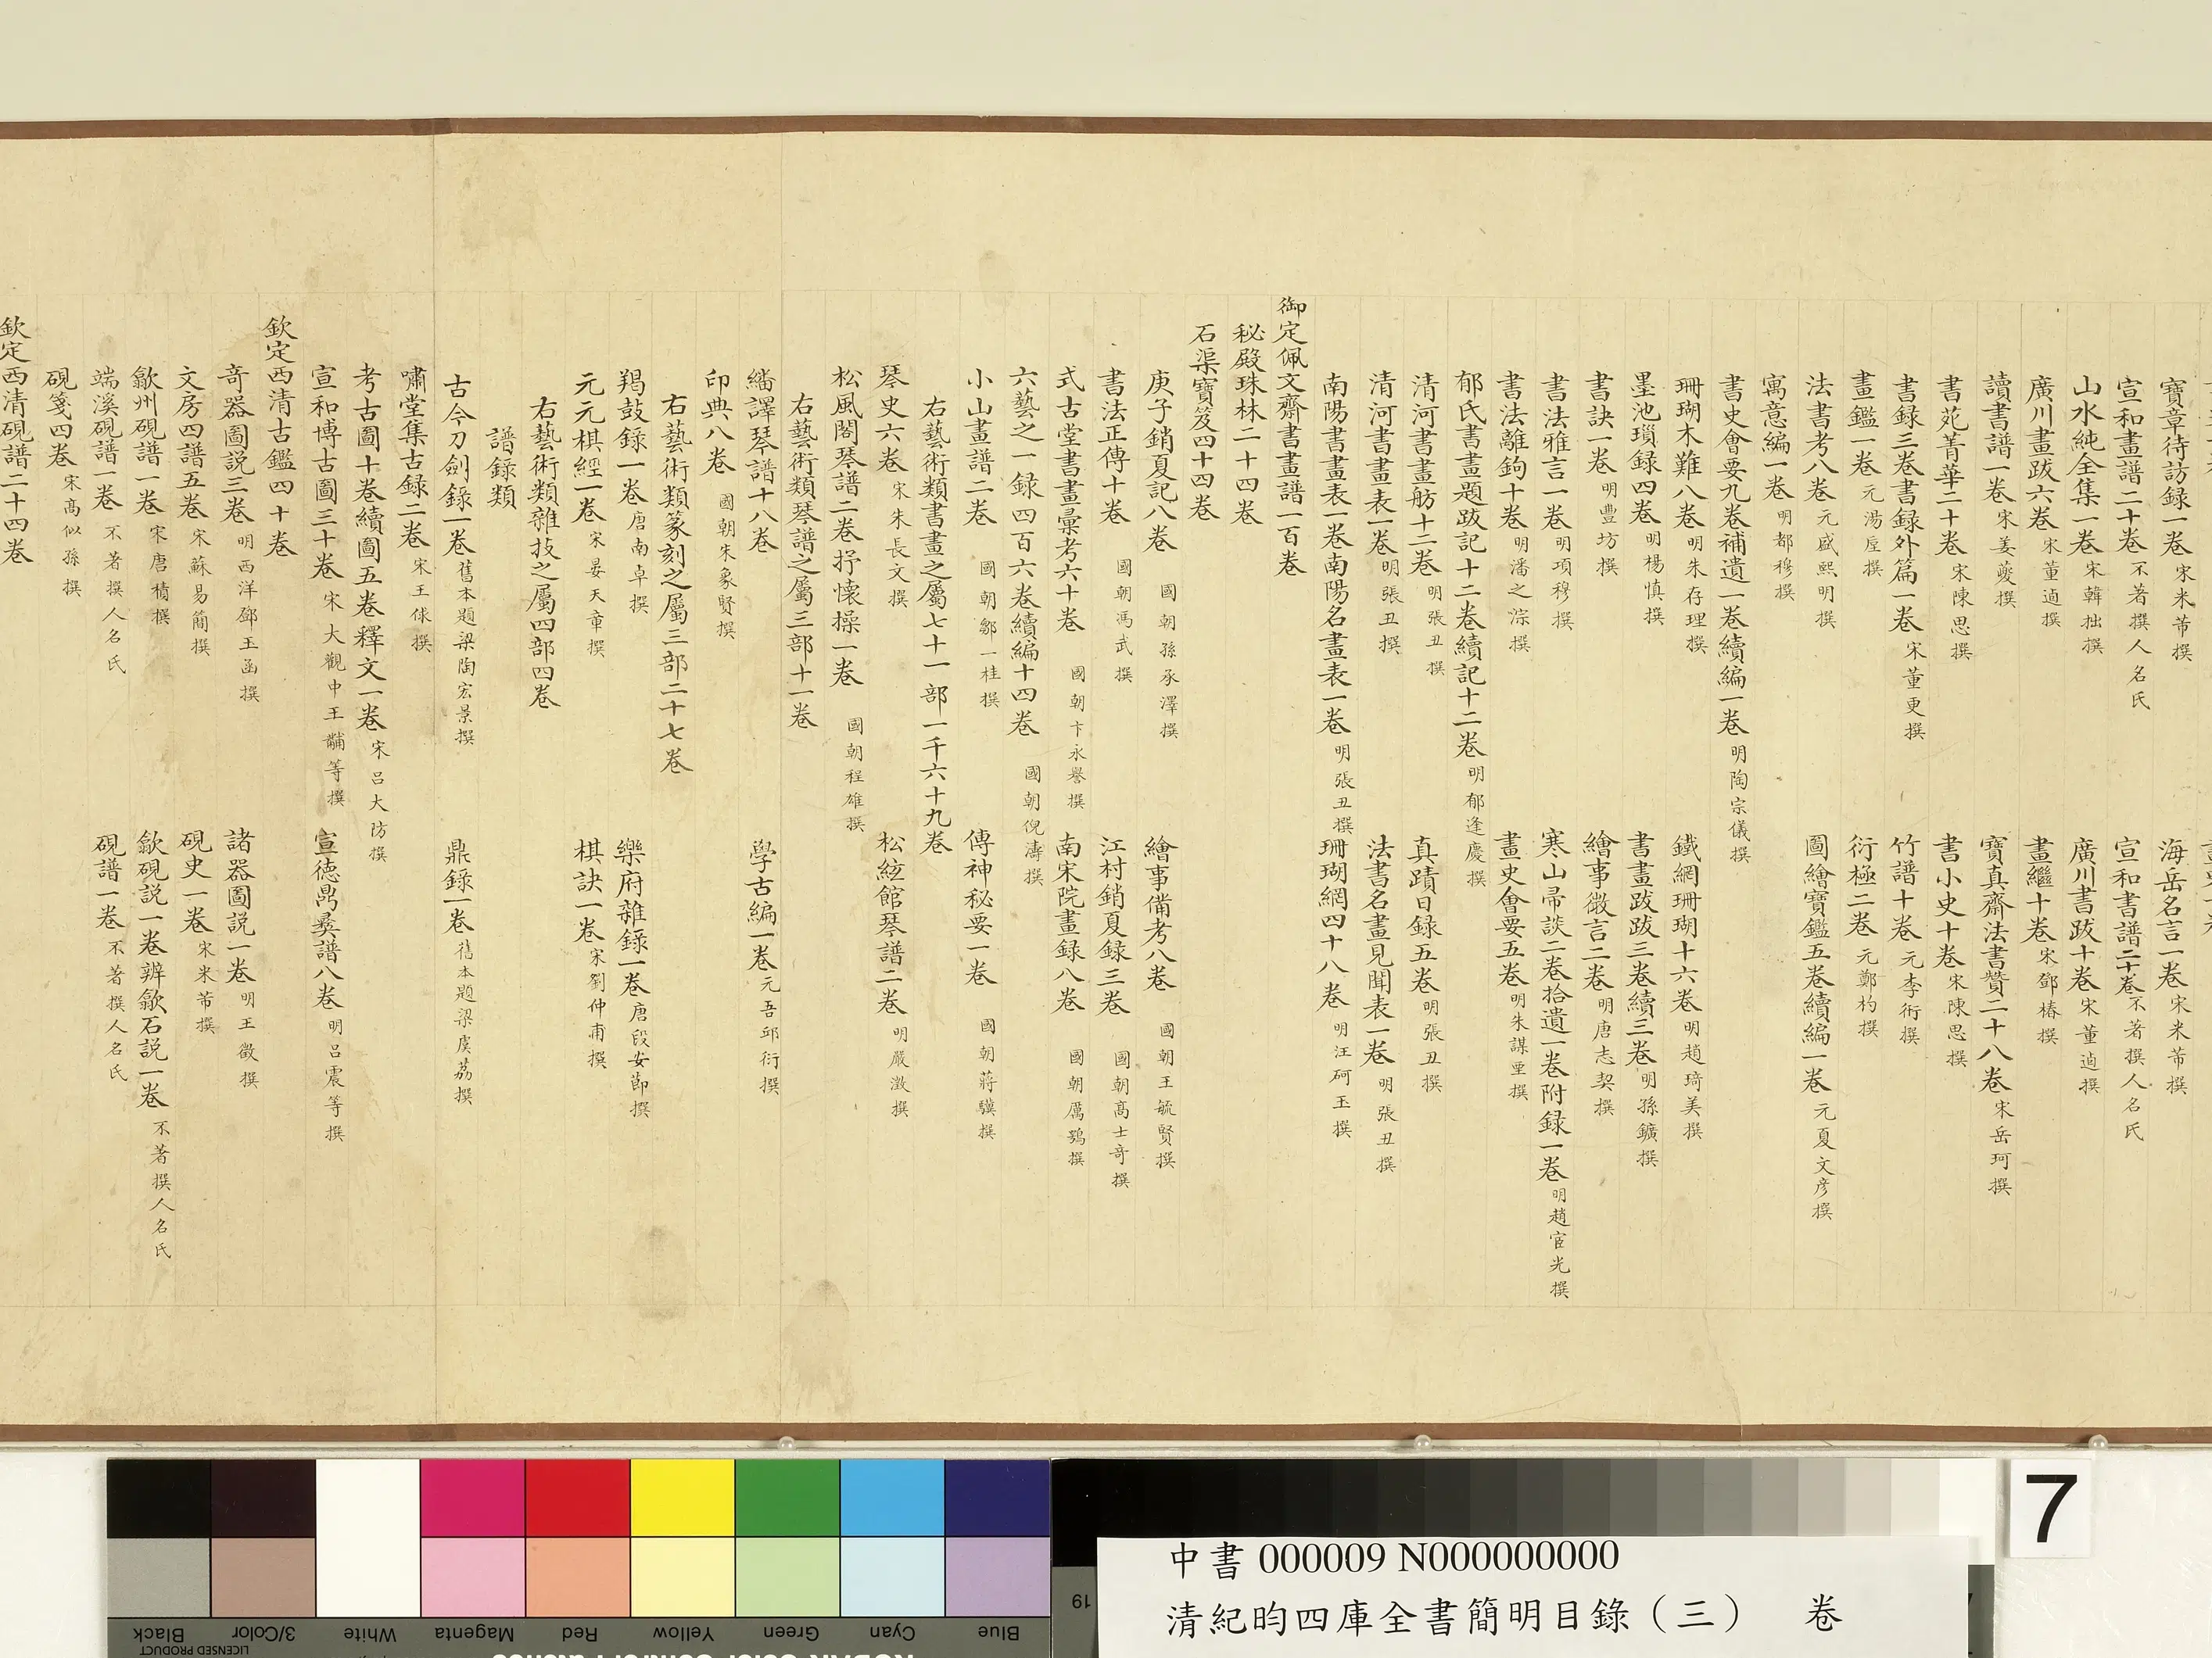 寶章待訪録一卷 宋米芾撰 海岳名言一卷 宋米芾撰
宣和畫譜二十卷 不著撰人名氏 宣和書譜二十卷 不著撰人名氏
山水純全集一卷 宋韓拙撰 廣川書跋十卷 宋董逌撰
廣川畫跋六卷 宋董逌撰 畫繼十卷 宋鄧椿撰
讀書譜一卷 宋姜夔撰 寶真齋法書贊二十八卷 宋岳珂撰
書苑菁華二十卷 宋陳思撰 書小史十卷 宋陳思撰
書録三卷書録外篇一卷 宋董更撰 竹譜十卷 元李衎撰
畫鑑一卷 元湯垕撰 衍極二卷 元鄭杓撰
法書考八卷 元盛熙明撰 圖繪寶鑑五卷續編一卷 元夏文彦撰
寓意編一卷 明都穆撰
書史會要九卷補遺一卷續編一卷 明陶宗儀撰
珊瑚木難八卷 明朱存理撰 鐵網珊瑚十六卷 明趙琦美撰
墨池瑣録四卷 明楊慎撰 書畫跋跋三卷續三卷 明孫鑛撰
書訣一卷 明豐坊撰 繪事微言二卷 明唐志契撰
書法雅言一卷 明項穆撰 寒山帚談二卷拾遺一卷附録一卷 明趙宧光撰
書法離鉤十卷 明潘之淙撰 畫史會要五卷 明朱謀垔撰
郁氏書畫題跋記十二卷續記十二卷 明郁逢慶撰
清河書畫舫十二卷 明張丑撰 真蹟日録五卷 明張丑撰
清河書畫表一卷 明張丑撰 法書名畫見聞表一卷 明張丑撰
南陽書畫表一卷南陽名畫表一卷 明張丑撰 珊瑚網四十八卷 明汪砢玉撰
御定佩文齋書畫譜一百卷
秘殿珠林二十四卷
石渠寶笈四十四卷
庚子銷夏記八卷 國朝孫承澤撰 繪事備考八卷 國朝王毓賢撰
書法正傳十卷 國朝馮武撰 江村銷夏録三卷 國朝高士奇撰
式古堂書畫彙考六十卷 國朝卞永譽撰 南宋院畫録八卷 國朝厲鶚撰
六藝之一録四百六卷續編十四卷 國朝倪濤撰
小山畫譜二卷 國朝鄒一桂撰 傳神秘要一卷 國朝蔣驥撰
右藝術類書畫之屬七十一部一千六十九卷
琴史六卷 宋朱長文撰 松絃館琴譜二卷 明嚴澂撰
松風閣琴譜二卷抒懷操一卷 國朝程雄撰
右藝術類琴譜之屬三部十一卷
繙譯琴譜十八卷 學古編一卷 元吾邱衍撰
印典八卷 國朝朱象賢撰
右藝術類篆刻之屬三部二十七卷
羯鼓録一卷 唐南卓撰 樂府雜錄一卷 唐段安節撰
元元棋經一卷 宋晏天章撰 棋訣一卷 宋劉仲甫撰
右藝術類雜技之屬四部四卷
譜録類
古今刀劍錄一卷 舊本題梁陶宏景撰 鼎録一卷 舊本題梁虞荔撰
嘯堂集古録二卷 宋王俅撰
考古圖十卷續圖五卷釋文一卷 宋呂大防撰
宣和博古圖三十卷 宋大觀中王黼等撰 宣德鼎彝譜八卷 明呂震等撰
欽定西清古鑑四十卷
奇器圖説三卷 明西洋鄧玉函撰 諸器圖説一卷 明王徵撰
文房四譜五卷 宋蘇易簡撰 硯史一卷 宋米芾撰
歙州硯譜一卷 宋唐積撰 歙硯説一卷辨歙石説一卷 不著撰人名氏
端溪硯譜一卷 不著撰人名氏 硯譜一卷 不著撰人名氏
硯箋四卷 宋高似孫撰
欽定西清硯譜二十四卷
Black
3/Color
White
Magenta
Red
Yellow
Green
Cyan
Blue
LICENSED PRODUCT
19
7
中書 000009 N000000000
清紀昀四庫全書簡明目錄（三） 卷